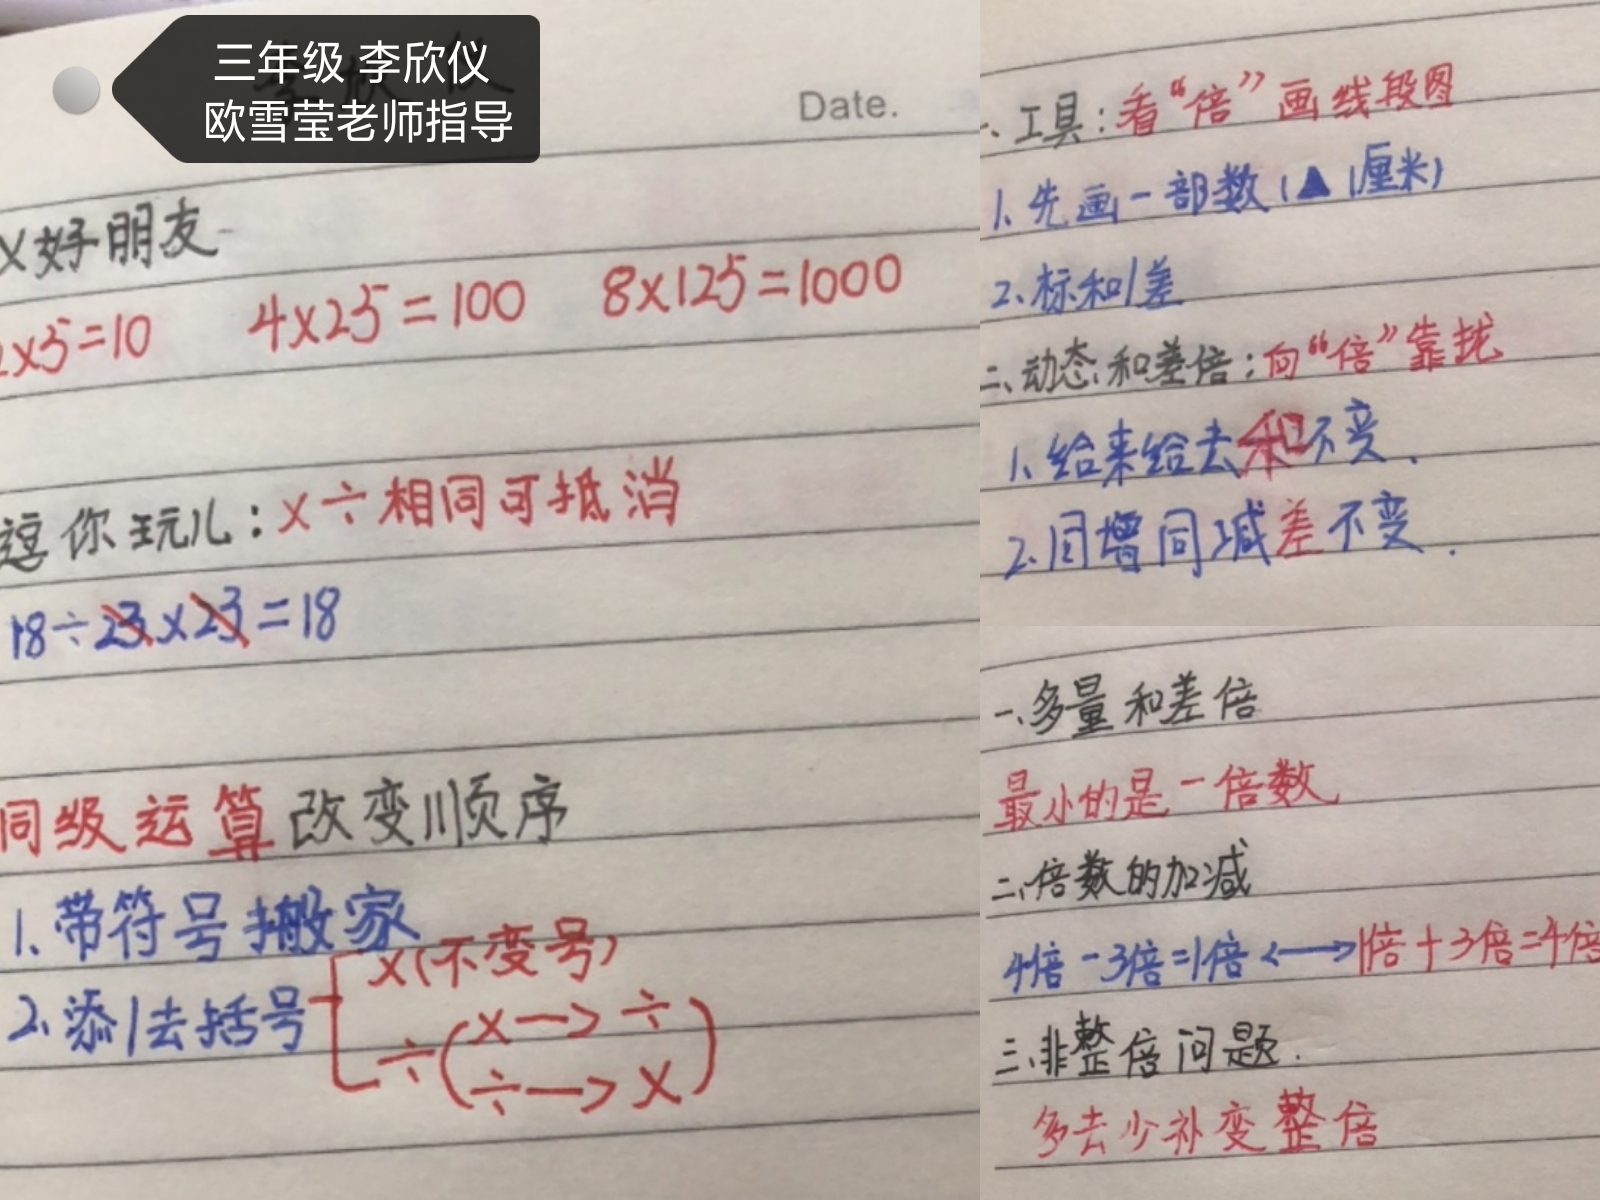 三年级 李欣仪
欧雪莹老师指导
Date.
×好朋友
2×5=10 4×25=100 8×125=1000
逗你玩儿:×÷相同可抵消
18÷23×23=18
同级运算改变顺序
1.带符号搬家
2.添/去括号
×(不变号)
÷(×→÷
÷→×)
一、工具:看“倍”画线段图
1.先画一部数(▲1厘米)
2.标和/差
二、动态和差倍:向“倍”靠拢
1.给来给去和不变.
2.同增同减差不变.
一、多量和差倍
最小的是一倍数
二、倍数的加减
4倍-3倍=1倍<—>1倍+3倍=4倍
三、非整倍问题.
多去少补变整倍